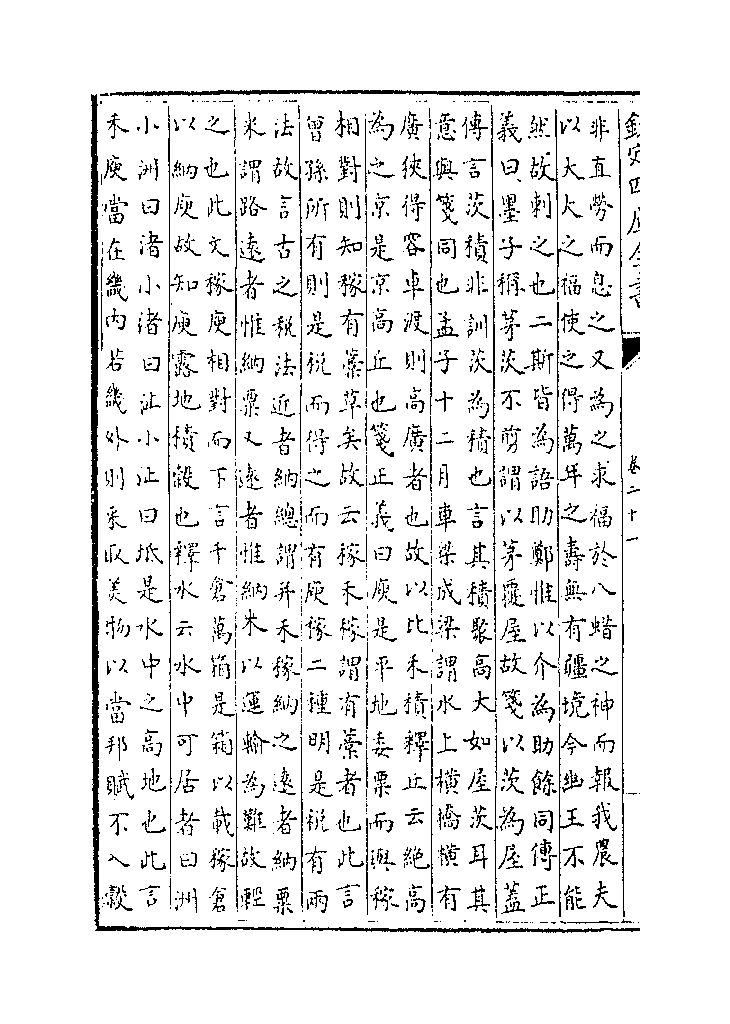 欽定四庫全書
卷二十一
非直勞而息之又為之求福於八蜡之神而報我農夫
以大大之福使之得萬年之壽無有疆境今幽王不能
然故刺之也二斯皆為語助鄭惟以介為助餘同傳正
義曰墨子稱茅茨不剪謂以茅覆屋故箋以茨為屋蓋
傳言茨積非訓茨為積也言其積聚高大如屋茨耳其
意與箋同也孟子十二月車梁成梁謂水上橫橋橫有
廣狹得容車渡則高廣者也故以比禾積釋丘云絶高
為之京是京高丘也箋正義曰庾是平地委粟而與稼
相對則知稼有藁草矣故云稼禾稼謂有藁者也此言
曾孫所有則是税而得之而有庾稼二種明是税有兩
法故言古之税法近者納總謂并禾稼納之遠者納粟
米謂路遠者惟納粟又遠者惟納米以運輸為難故輕
之也此文稼庾相對而下言千倉萬箱是箱以載稼倉
以納庾故知庾露地積穀也釋水云水中可居者曰洲
小洲曰渚小渚曰沚小沚曰坻是水中之高地也此言
禾庾當在畿内若畿外則采取美物以當邦賦不入穀